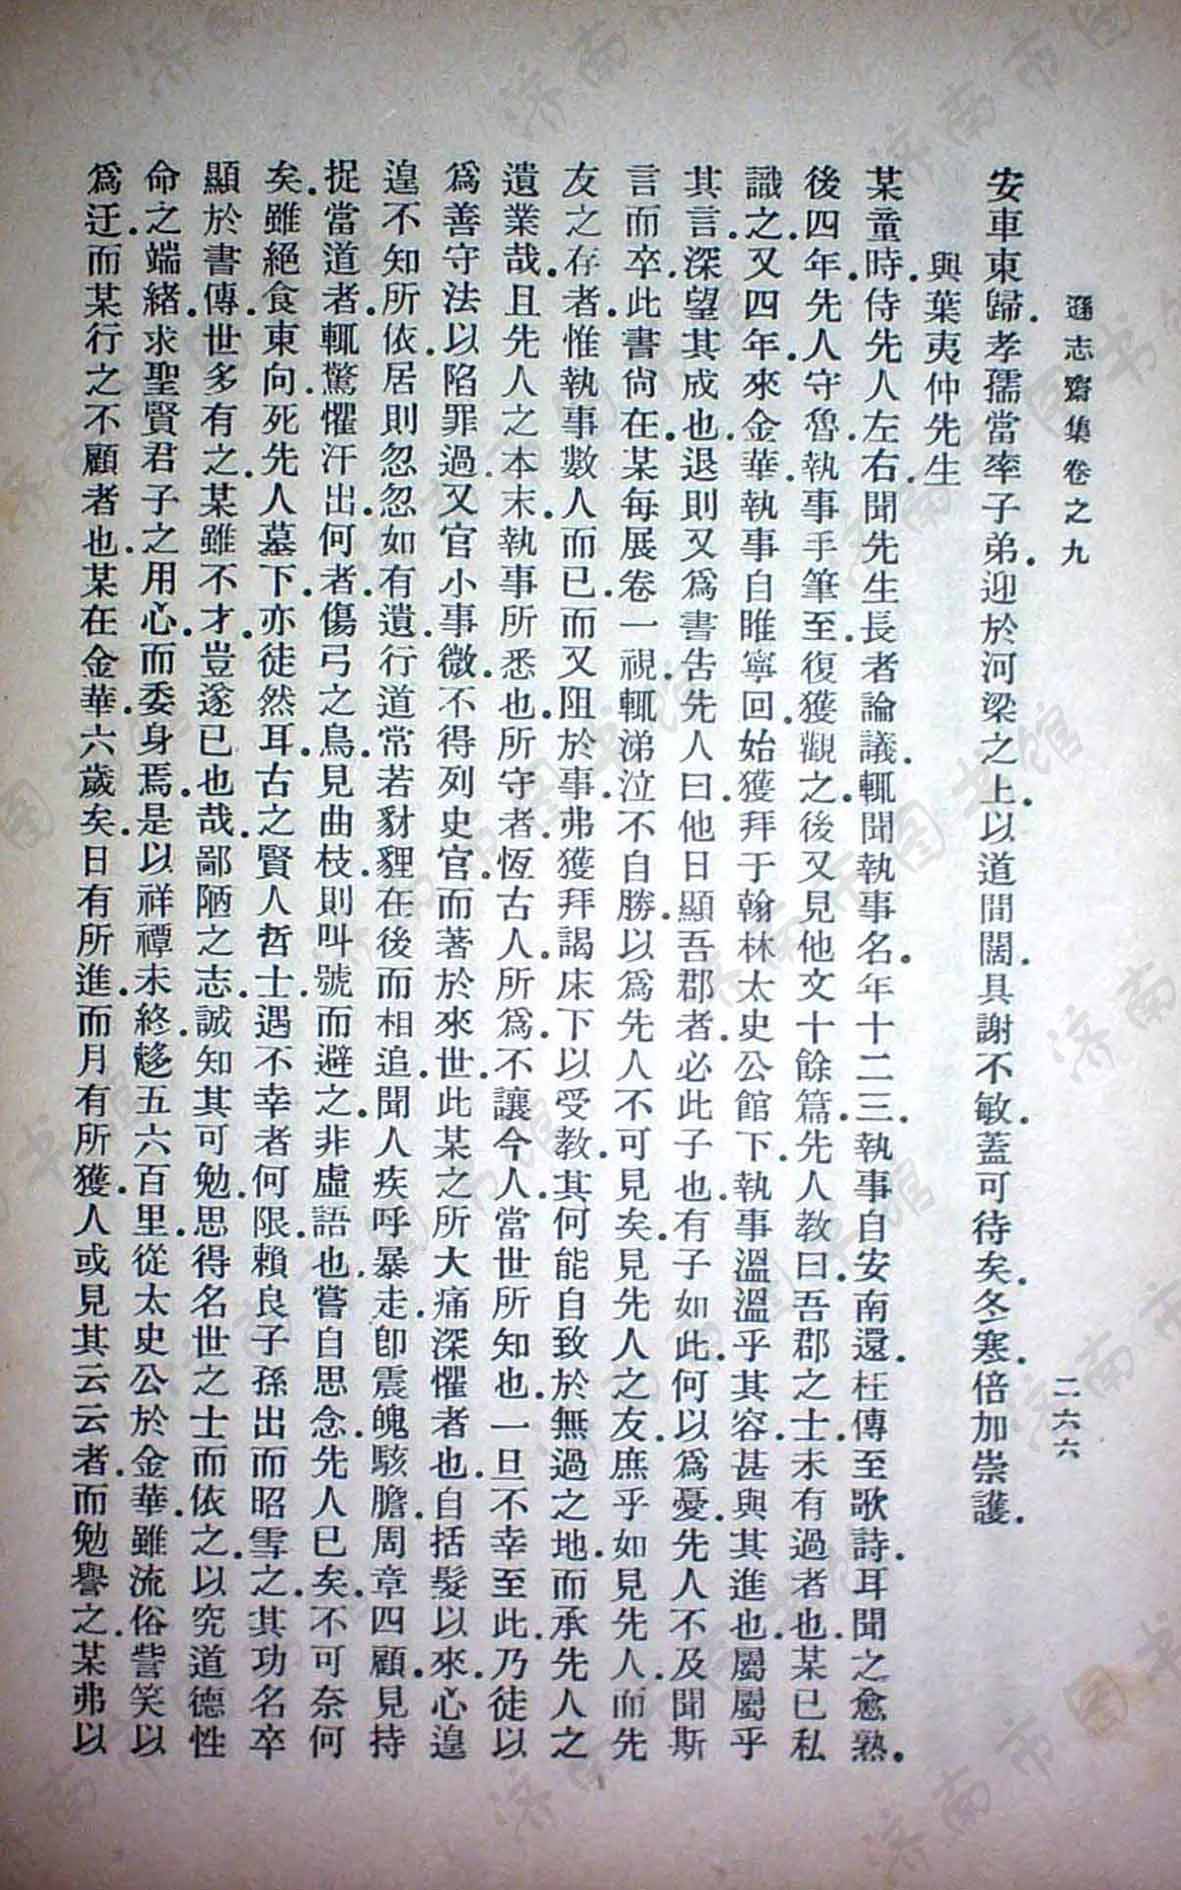 遜志齋集卷之九 二六六
安車東歸.孝孺當率子弟.迎於河梁之上.以道間闊.具謝不敏.蓋可待矣.冬寒.倍加崇護.
與葉夷仲先生
某童時.侍先人左右.聞先生長者論議.輒聞執事名.年十二三.執事自安南還.枉傳至歌詩.耳聞之愈熟.
後四年.先人守魯.執事手筆至.復獲觀之.後又見他文十餘篇.先人教曰.吾郡之士.未有過者也.某已私
識之.又四年.來金華.執事自睢寧回.始獲拜于翰林太史公館下.執事溫溫乎其容.甚與其進也.屬屬乎
其言.深望其成也.退則又爲書告先人曰.他日顯吾郡者.必此子也.有子如此.何以爲憂.先人不及聞斯
言而卒.此書尙在.某每展卷一視.輒涕泣不自勝.以爲先人不可見矣.見先人之友.庶乎如見先人.而先
友之存者.惟執事數人而已.而又阻於事.弗獲拜謁床下.以受教.其何能自致於無過之地.而承先人之
遺業哉.且先人之本末.執事所悉也.所守者.恆古人所爲.不讓今人.當世所知也.一旦不幸至此.乃徒以
爲善守法.以陷罪過.又官小事微.不得列史官.而著於來世.此某之所大痛深懼者也.自括髮以來.心遑
遑不知所依.居則忽忽如有遺.行道常若豺貍在後而相追.聞人疾呼暴走.卽震魄駭膽.周章四顧.見持
捉當道者.輒驚懼汗出.何者.傷弓之鳥.見曲枝.則叫號而避之.非虛語也.嘗自思念.先人已矣.不可奈何
矣.雖絕食東向.死先人墓下.亦徒然耳.古之賢人哲士.遇不幸者何限.賴良子孫出而昭雪之.其功名卒
顯於書傳.世多有之.某雖不才.豈遂已也哉.鄙陋之志.誠知其可勉.思得名世之士而依之.以究道德性
命之端緒.求聖賢君子之用心.而委身焉.是以祥禫未終.趨五六百里.從太史公於金華.雖流俗訾笑以
爲迂.而某行之不顧者也.某在金華.六歲矣.日有所進.而月有所獲.人或見其云云者.而勉譽之.某弗以